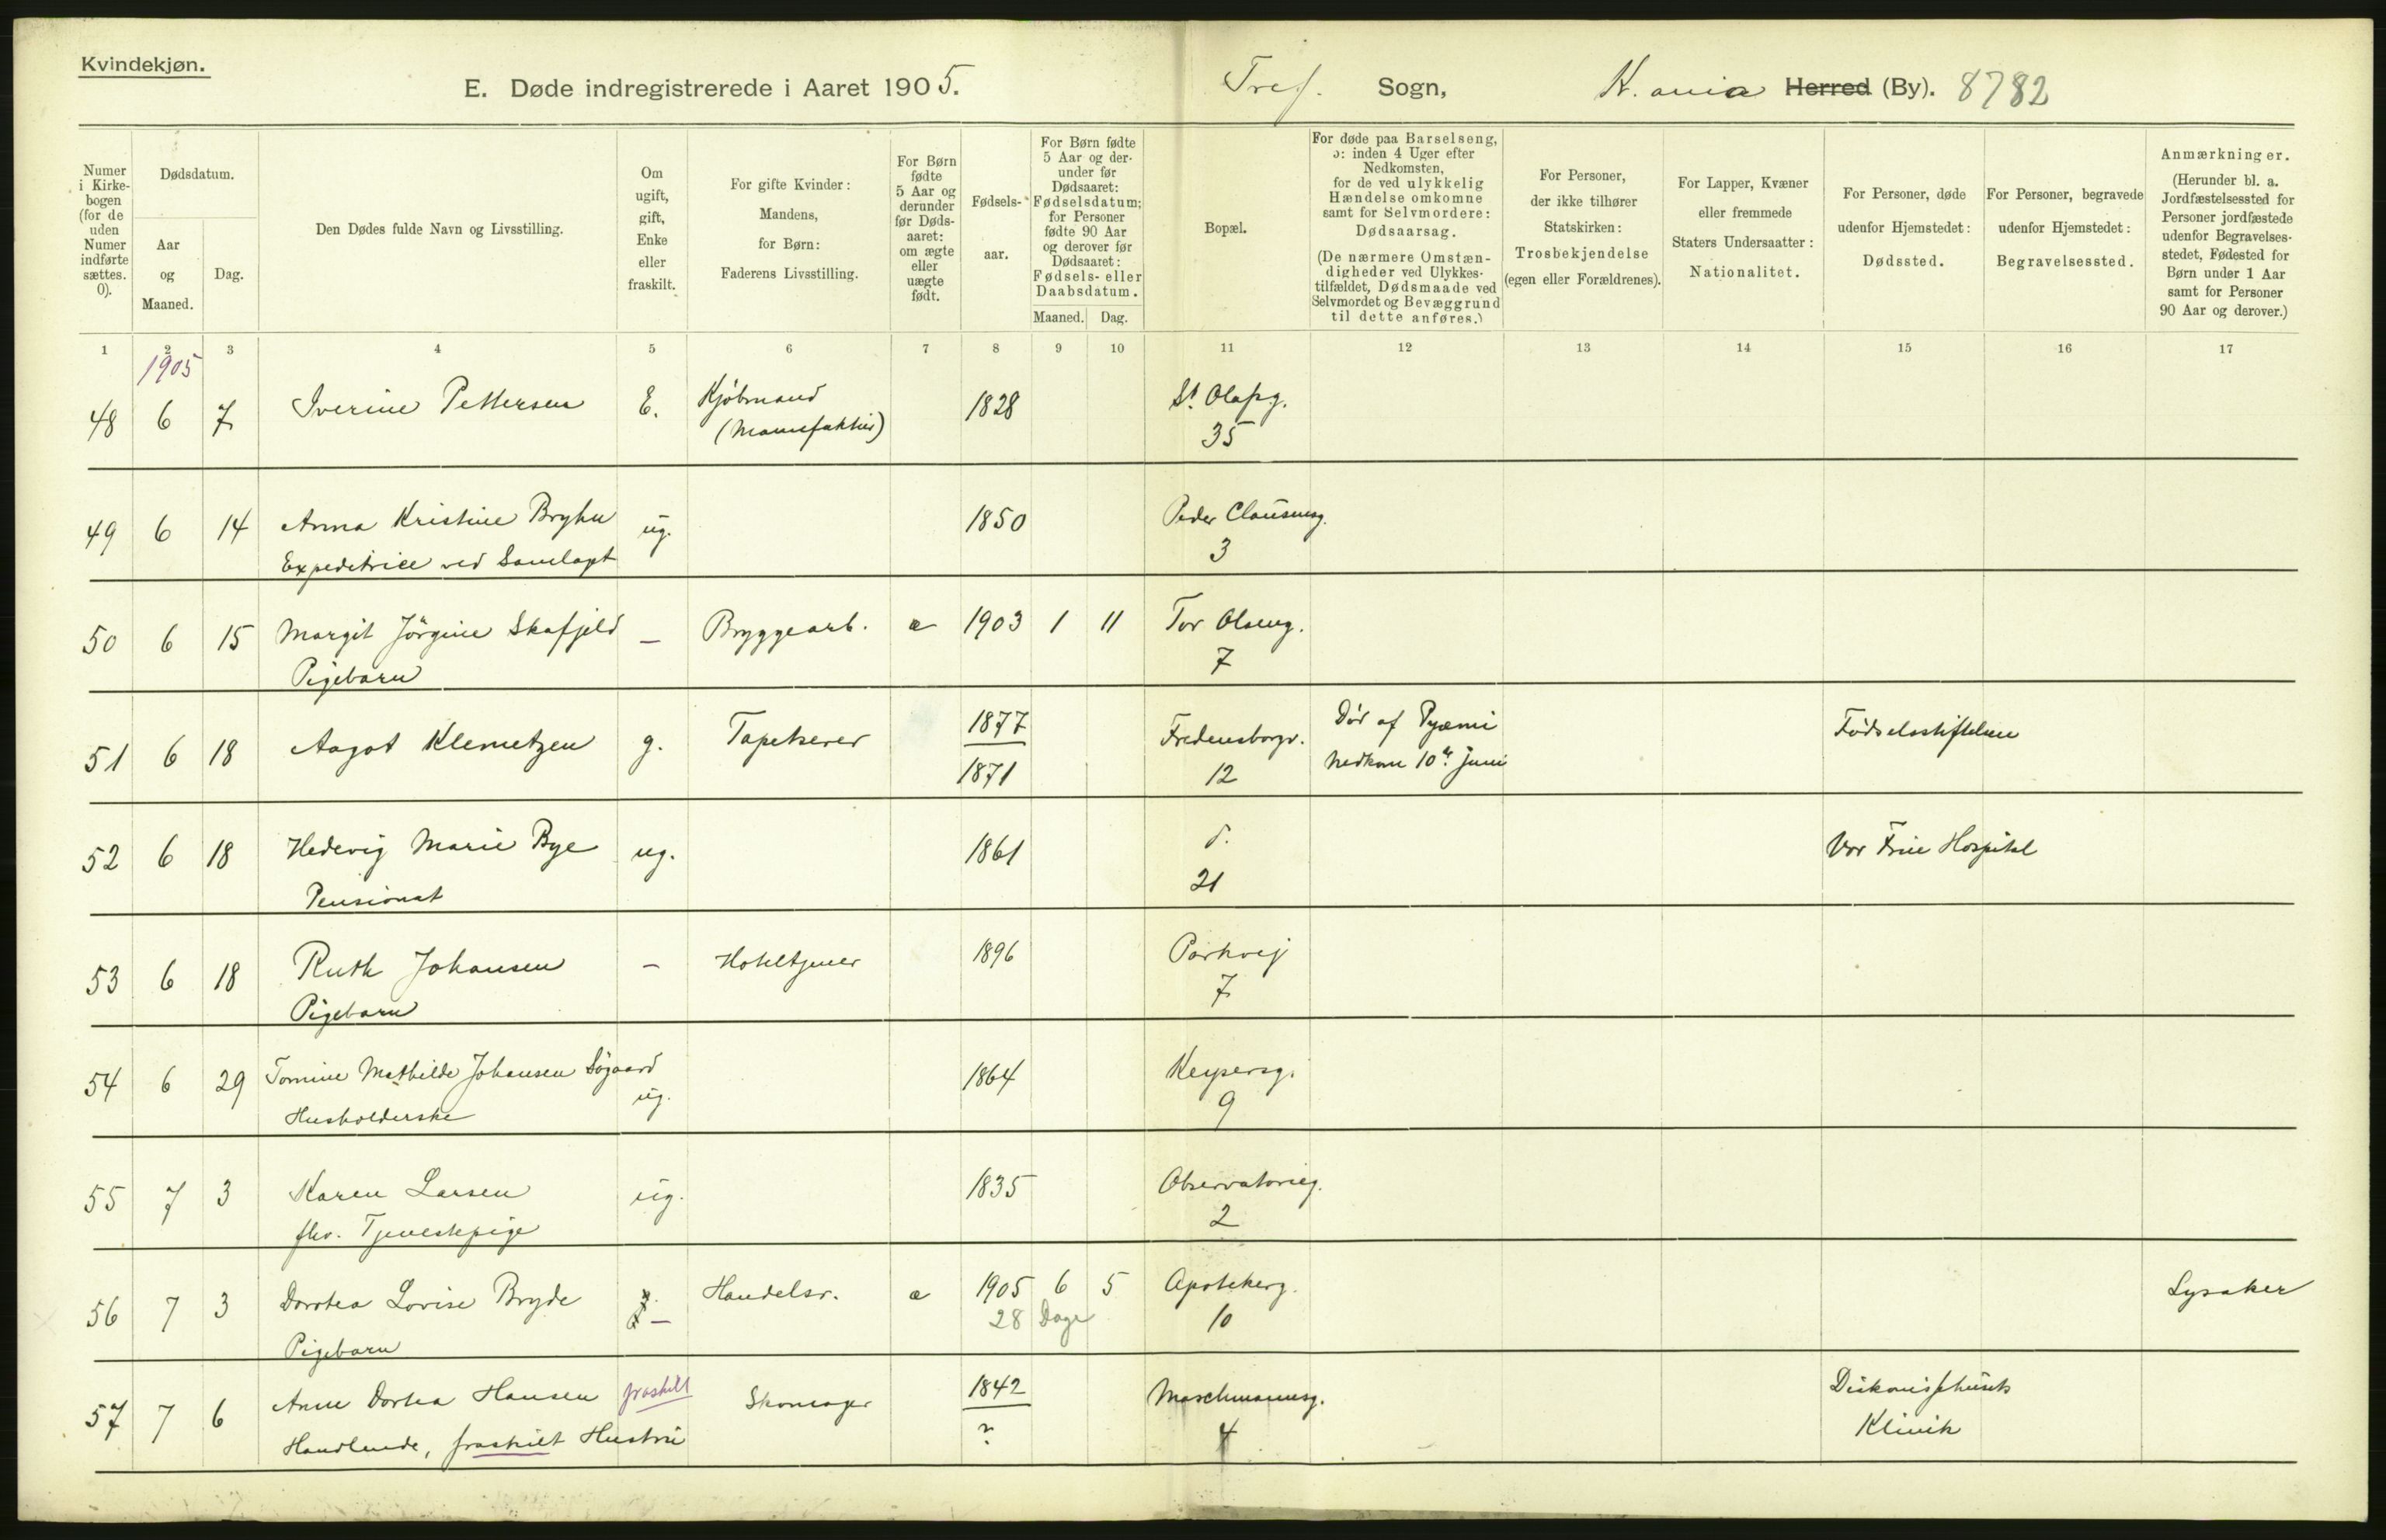 Kvindekjøn.
E. Døde indregistrerede i Aaret 1905. Tref. Sogn, K.ania Herred (By). 8782
Numer i Kirkebogen (for de uden Numer indførte sættes. 0).
Dødsdatum.
Aar og Maaned.
Dag.
Den Dødes fulde Navn og Livsstilling.
Om ugift, gift, Enke eller fraskilt.
For gifte Kvinder: Mandens, for Børn: Faderens Livsstilling.
For Børn fødte 5 Aar og derunder før Dødsaaret: om ægte eller uægte født.
Fødsels-aar.
For Børn fødte 5 Aar og derunder før Dødsaaret: Fødselsdatum; for Personer fødte 90 Aar og derover før Dødsaaret: Fødsels- eller Daabsdatum.
Maaned. Dag.
Bopæl.
For døde paa Barselseng, ɔ: inden 4 Uger efter Nedkomsten, for de ved ulykkelig Hændelse omkomne samt for Selvmordere: Dødsaarsag.
(De nærmere Omstændigheder ved Ulykkestilfældet, Dødsmaade ved Selvmordet og Bevæggrund til dette anføres.)
For Personer, der ikke tilhører Statskirken: Trosbekjendelse (egen eller Forældrenes).
For Lapper, Kvæner eller fremmede Staters Undersaatter: Nationalitet.
For Personer, døde udenfor Hjemstedet: Dødssted.
For Personer, begravede udenfor Hjemstedet: Begravelsessted.
Anmærkninger.
(Herunder bl. a. Jordfæstelsessted for Personer jordfæstede udenfor Begravelsesstedet, Fødested for Børn under 1 Aar samt for Personer 90 Aar og derover.)
1 2 3 4 5 6 7 8 9 10 11 12 13 14 15 16 17
1905
48 6 7 Iverine Pettersen E. Kjøbmand 1828 St. Olafsg.
(Manufaktur) 35
49 6 14 Anna Kristine Bryhn ug. 1850 Peder Clausensg.
Expeditrice ved Samlaget 3
50 6 15 Margit Jörgine Skafjeld — Bryggearb. æ 1903 1 11 Tor Olseng.
Pigebarn 7
51 6 18 Aagot Klemetzen g. Tapetserer 1877 Fredensborgv. Död af Pyæmi Fødselsstiftelsen
1871 12 Nedkom 10de Juni
52 6 18 Hedevig Marie Bye ug. 1861 d. Vor Frue Hospital
Pensionat 21
53 6 18 Ruth Johansen — Hoteltjener 1896 Parkvej
Pigebarn 7
54 6 29 Tomine Mathilde Johansen Søgaard ug. 1864 Keysersg.
Husholderske 9
55 7 3 Karen Larsen ug. 1835 Observatorieg.
fhv. Tjenestepige 2
56 7 3 Dorotea Lovise Bryde — Handelsr. æ 1905 6 5 Apotekerg. Lysaker
Pigebarn 28 Dage 10
57 7 6 Anne Dortea Hansen fraskilt Skomager 1842 Maschmannsg. Diakonissehusets
Handlende, fraskilt Hustru ? 4 Klinik